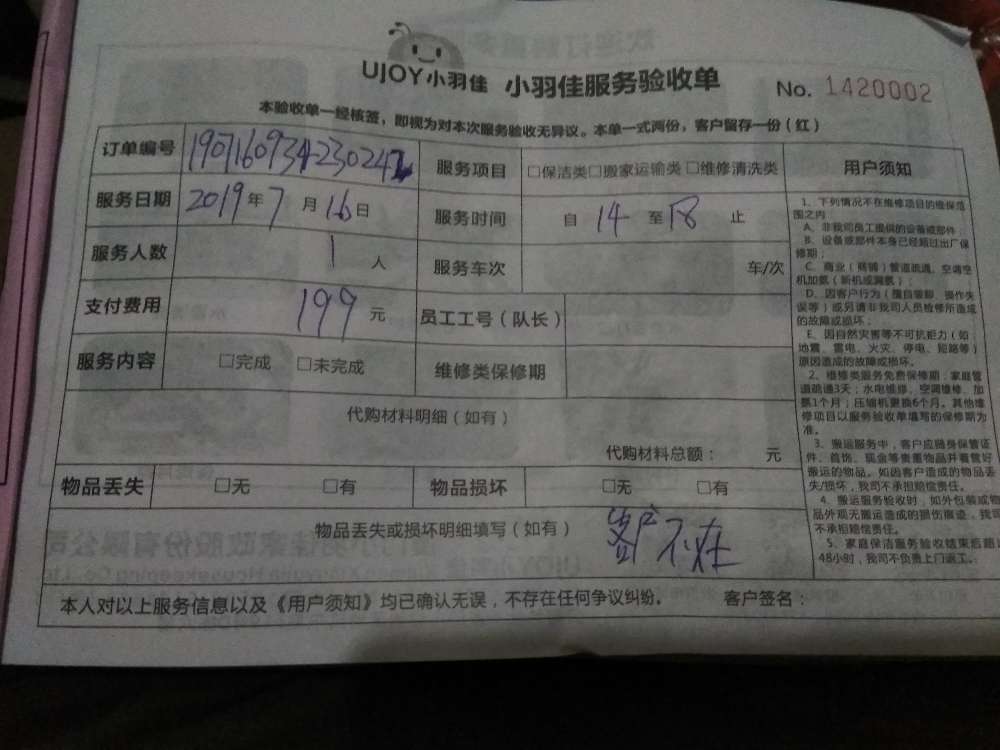 UJOY小羽佳 小羽佳服务验收单 No. 1420002
本验收单一经核签，即视为对本次服务验收无异议。本单一式两份，客户留存一份（红）
订单编号 服务项目 □保洁类□搬家运输类 □维修清洗类
服务日期 2019年7月16日 服务时间 自 14 至 18 止
服务人数 1 人 服务车次 车/次
支付费用 199 元 员工工号（队长）
服务内容 □完成 □未完成 维修类保修期
代购材料明细（如有）
代购材料总额： 元
物品丢失 □无 □有 物品损坏 □无 □有
物品丢失或损坏明细填写（如有） 客户不在
本人对以上服务信息以及《用户须知》均已确认无误，不存在任何争议纠纷。 客户签名：
用户须知
1、下列情况不在维修项目的维保范
围之内
A、非我司员工提供的设备或部件
B、设备或部件本身已经超过出厂保
修期；
C、商业（商铺）管道疏通、空调空
机加氨（新机或漏氨）；
D、因客户行为（擅自装卸、操作失
误等）或另请非我司人员检修所造成
的故障或损坏；
E、因自然灾害等不可抗拒力（如
地震、雷电、火灾、停电、短路等）
原因造成的故障或损坏。
2、维修类服务免费保修期：家庭管
道疏通3天；水电维修、空调维修、加
氨1个月；压缩机更换6个月。其他维
修项目以服务验收单填写的保修期为
准。
3、搬运服务中，客户应随身保管证
件、首饰、现金等贵重物品并看管好
搬运的物品。如因客户造成的物品丢
失/损坏，我司不承担赔偿责任。
4、搬运服务验收时，如外包装或物
品外观无搬运造成的损伤痕迹，我司
不承担赔偿责任。
5、家庭保洁服务验收结束后超过
48小时，我司不负责上门返工。